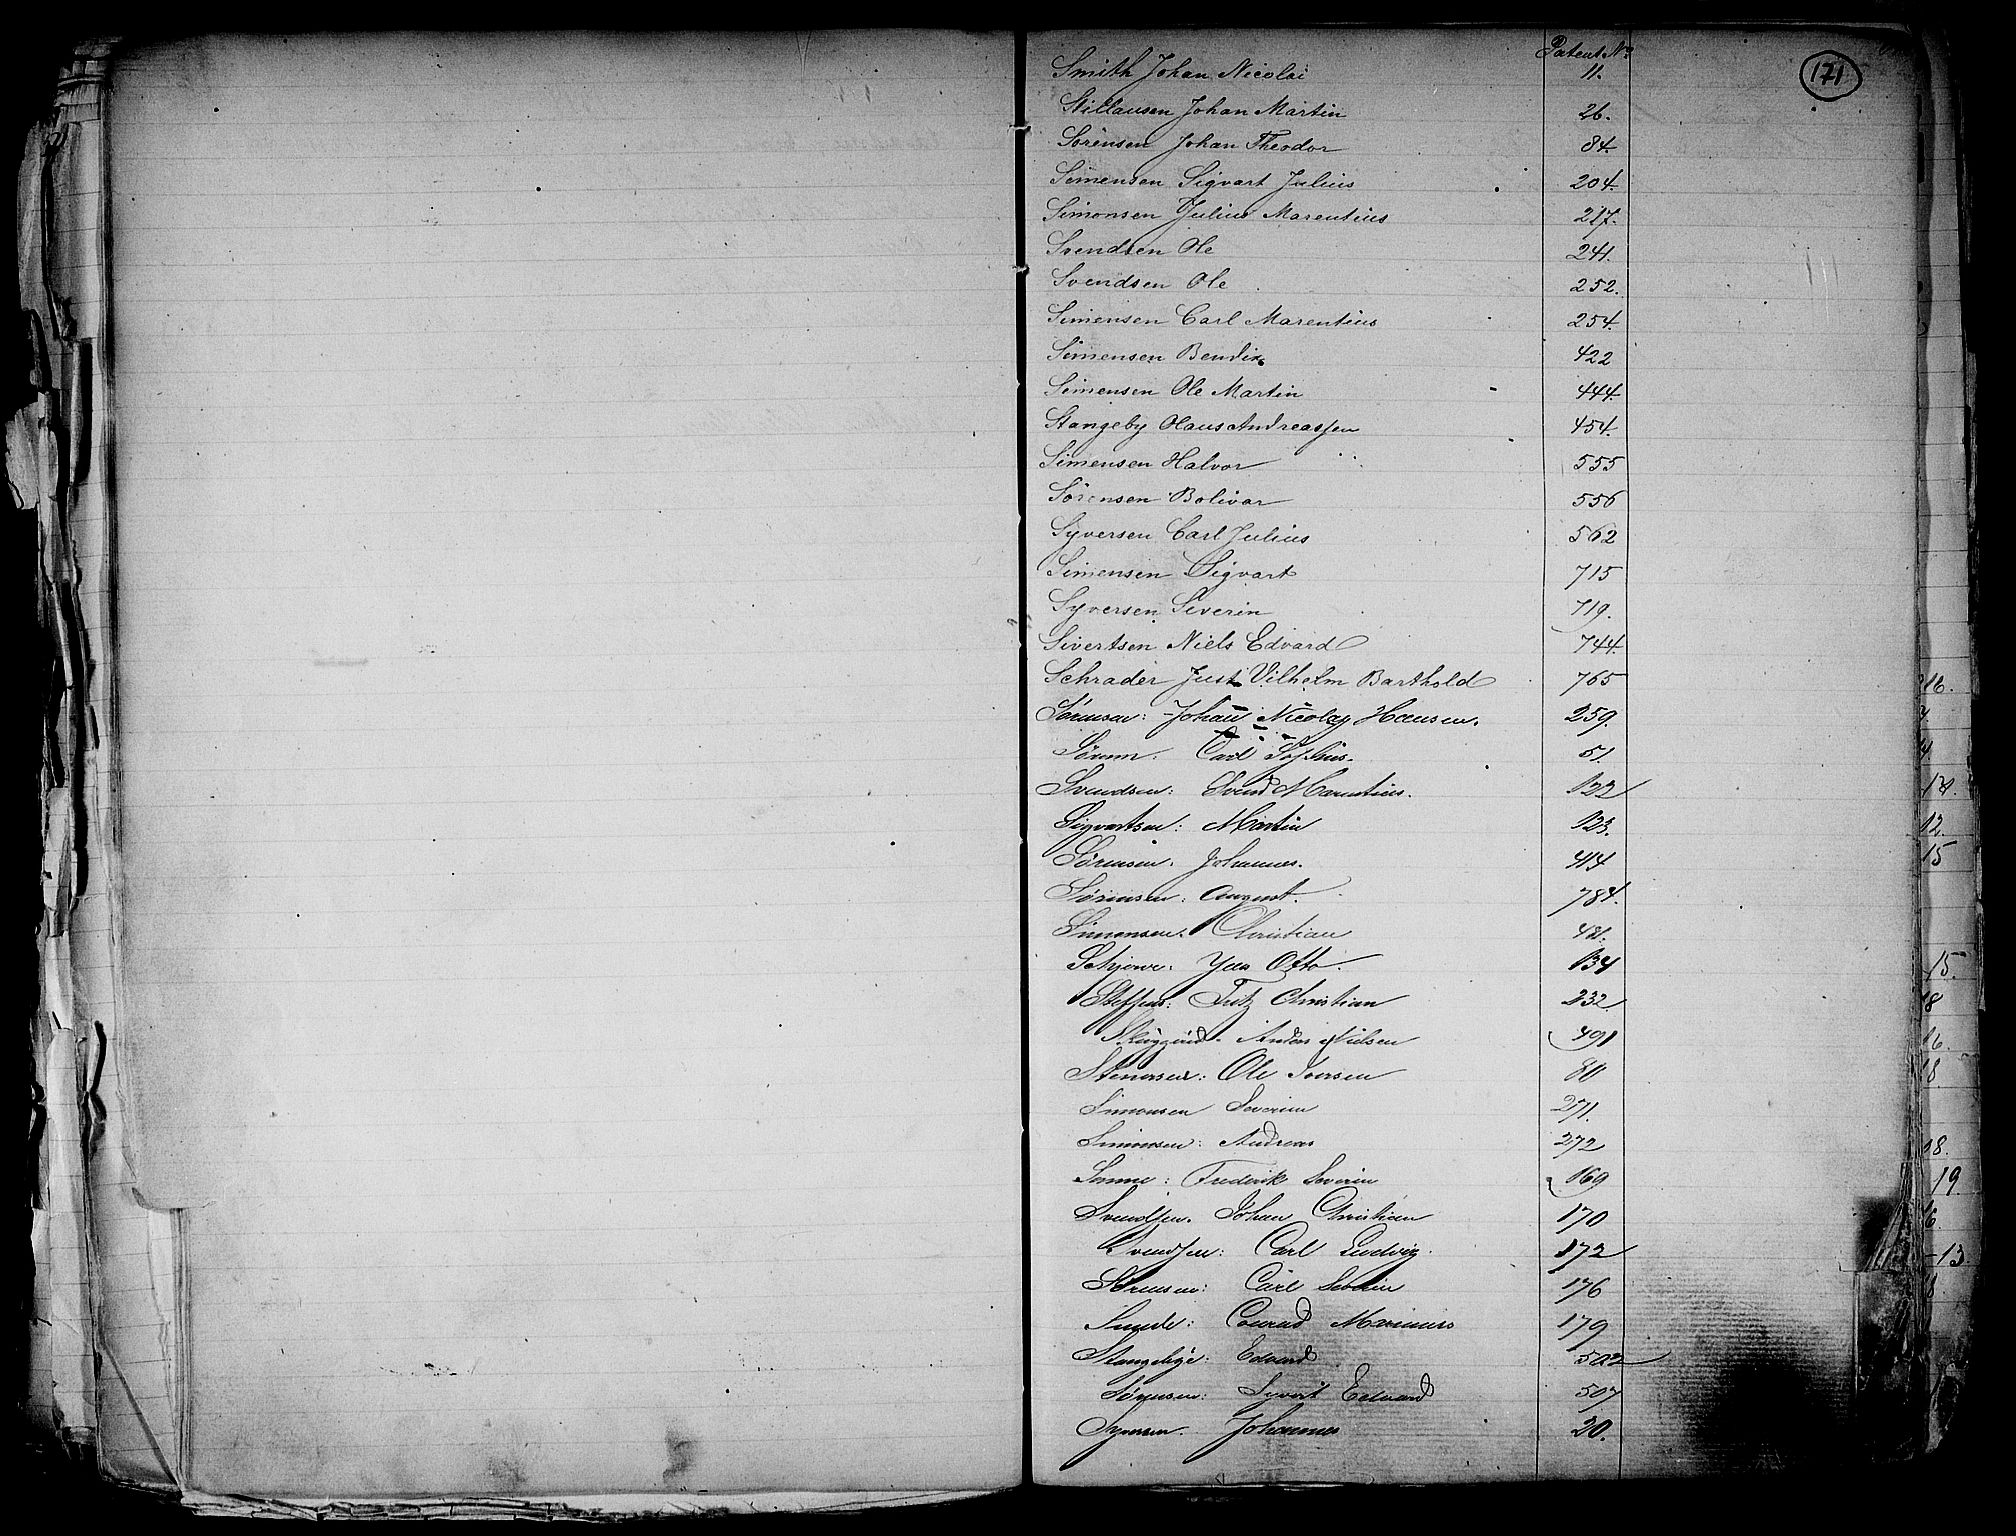 Patent No
171
Smith Johan Nicolai 11.
Stillausen Johan Martin 26.
Sörensen Johan Theodor 84.
Simensen Sigvart Julius 204.
Simonsen Julius Marentius 217.
Svendsen Ole 241.
Svendsen Ole 252.
Simensen Carl Marentius 254.
Simensen Bendix 422
Simensen Ole Martin 444.
Stangeby Olaus Andreassen 454.
Simensen Halvor 555
Sörensen Bolivar 556
Syversen Carl Julius 562
Simensen Sigvart 715
Syversen Severin 719.
Sivertsen Niels Edvard 744.
Schrader Just Vilhelm Barthold 765
Sørensen: Johan Nicolay Hansen. 259.
Carl Sofhus. 51.
Svendsen: Svend Marentius. 122
Sigvartsen: Martin 123.
Sørensen. Johannes. 414
Sørensen: August. 784.
Simonsen. Christian 481.
Otto. 134
Steffens: Fritz Christian 232
Anders Nielsen 491
Stenersen: Ole Iversen 80
Simonsen Severin 271.
Simonsen: Andreas 272
Frederik Severin 169
Svendsen. Johan Christian 170
Svendsen: Carl Ludvig. 172
Sørensen: Carl Severin 176
Sunde: Conrad Marinius 179
Stangebye: Edvard 502
Sørensen: Syvert Edvard 507
Syversen. Johannes 20.